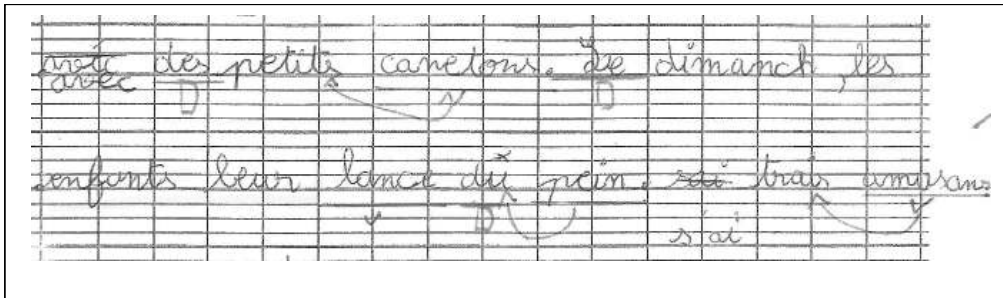 avéc des petits canetons. Le dimanch, les
avec D D
enfants leur lance du pain. sai trais amusans
D s'ai